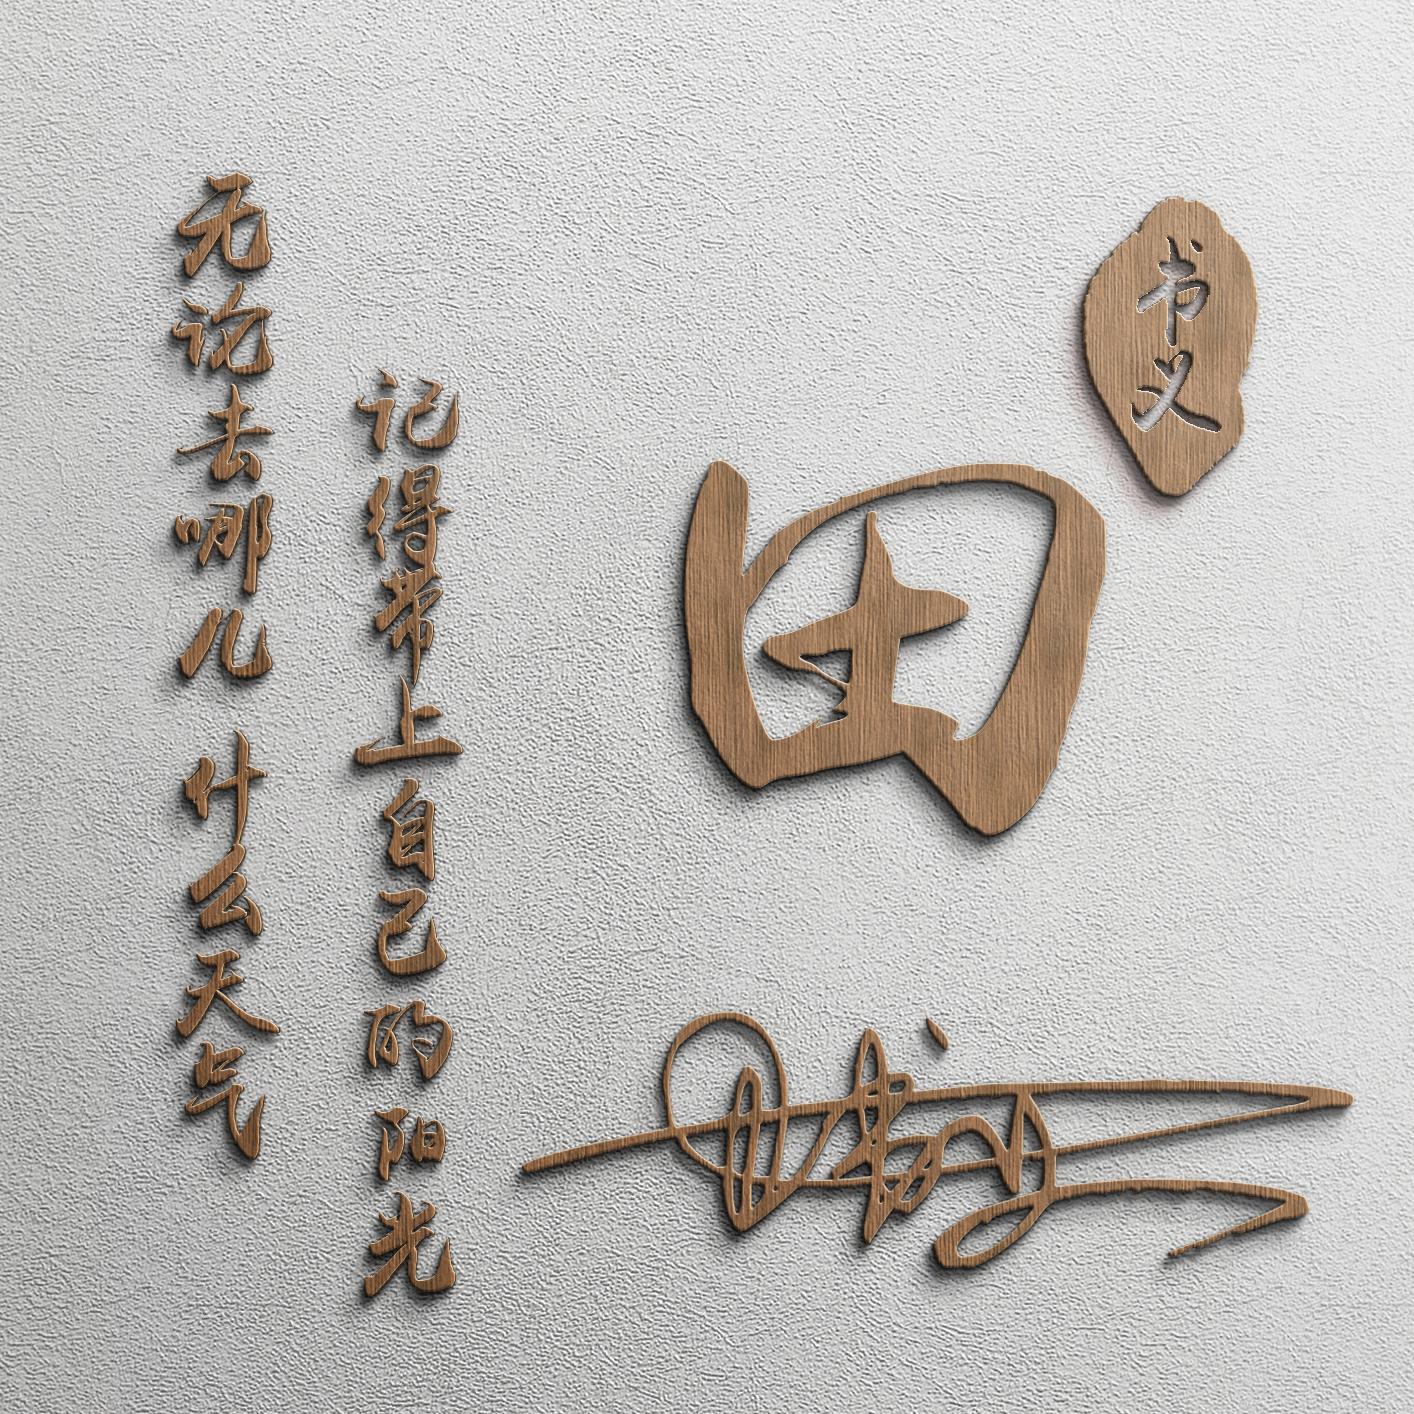 无论去哪儿 什么天气
记得带上自己的阳光
田
书义